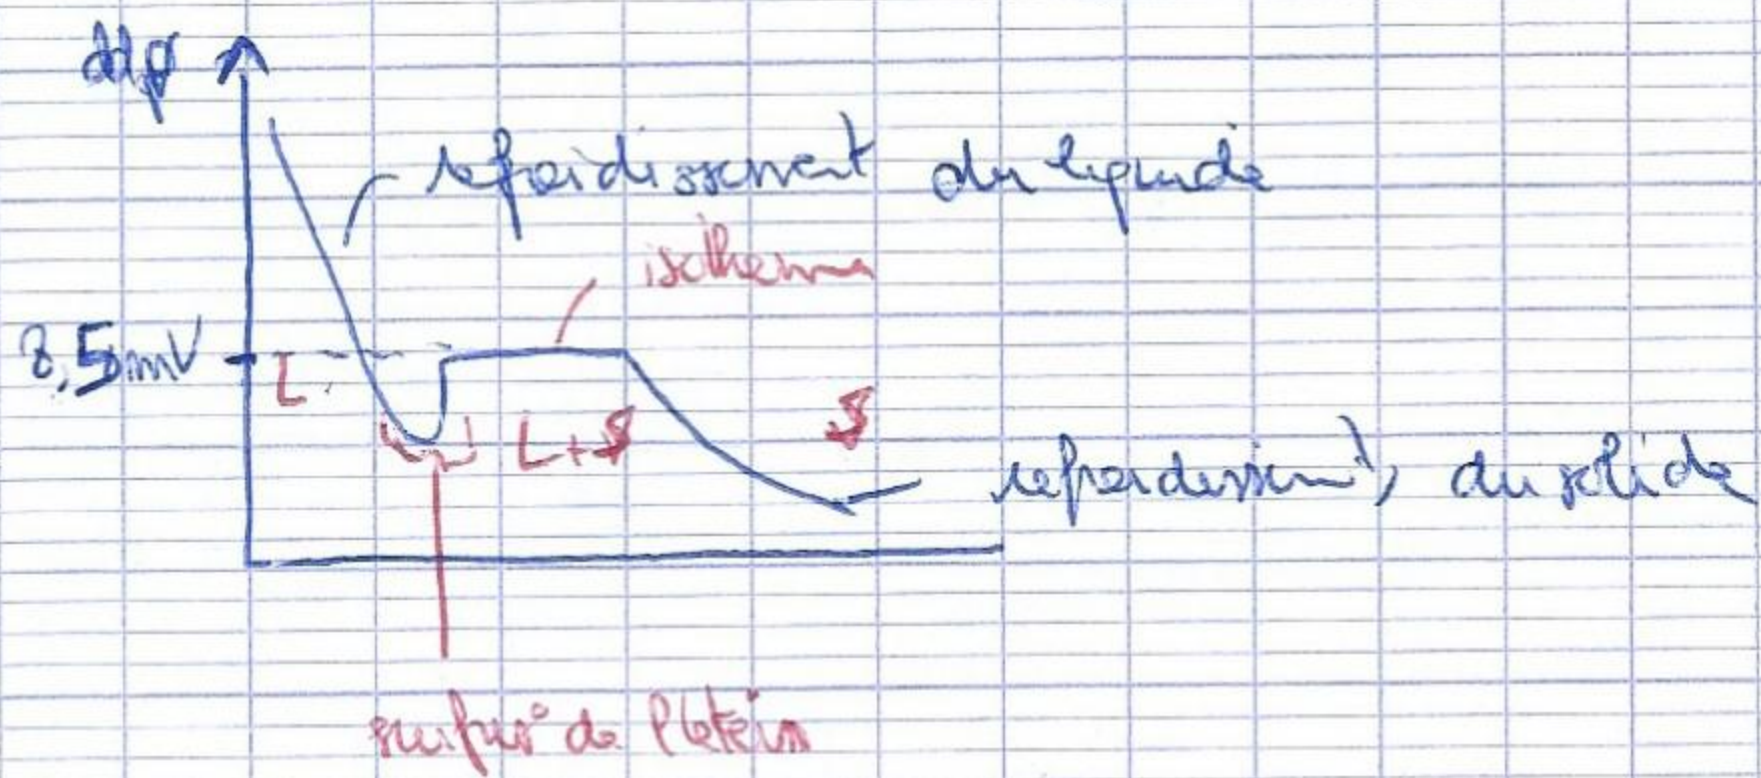 ddp
refroidissement du liquide
isotherme
8,5mV
L
L+S
S
refroidissemt, du solide
surfus° de l'étain